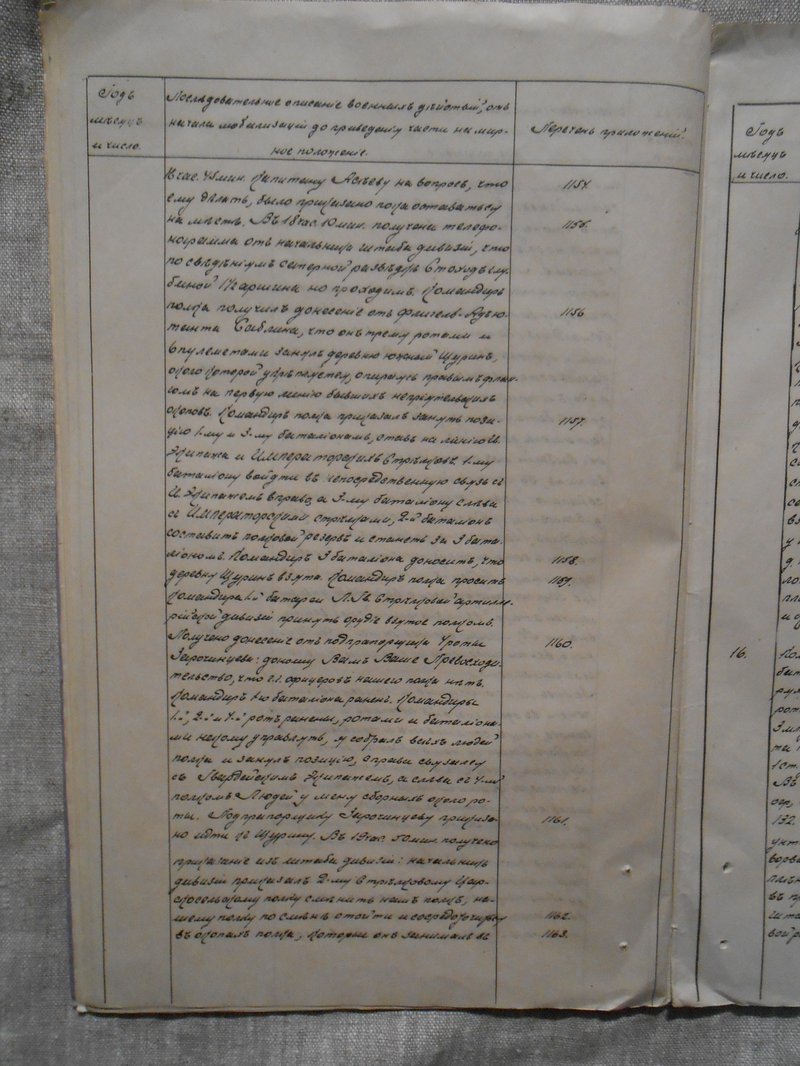 Годъ
мѣсяцъ
и число.
Послѣдовательное описаніе военныхъ дѣйствій, отъ
начала мобилизаціи до приведенія части на мир-
ное положеніе.
Перечень приложеній.
час. 45 мин. Капитану на вопросъ, что 1154.
ему дѣлать, было приказано пока оставаться
на мѣстѣ. Въ 18 час. 10 мин. получена телефо- 1155.
нограмма отъ начальника штаба дивизіи, что
по свѣдѣніямъ саперной развѣдки Стоходъ глу-
биной аршина но проходимъ. Командиръ
полка получилъ донесеніе отъ флигель-Адъю- 1156
танта Саблина, что онъ тремя ротами и
пулеметами занялъ деревню южный Щуринъ,
около которой укрѣпляется, опираясь правымъ флан-
гомъ на первую линію бывшихъ непріятельскихъ
окоповъ. Командиръ полка приказалъ занять пози- 1157.
цію 1-му и 3-му баталіонамъ, ставъ на линію Гв.
Экипажа и Императорскихъ Стрѣлковъ. 1-му
баталіону войти въ непосредственную связь съ
Экипажемъ вправо, а 3-му баталіону слѣва
съ Императорскими стрѣлками, 2-й баталіонъ
составитъ полковой резервъ и станетъ за 3 бата-
ліономъ. Командиръ 3 баталіона доноситъ, что 1158.
деревня Щуринъ взята. Командиръ полка проситъ 1159.
Командира 1-й батареи Л.-Гв. Стрѣлковой артилле-
рійской дивизіи принять орудія взятые полкомъ.
Получено донесеніе отъ подпрапорщика 4 роты 1160.
Зарочинцева: доношу Вамъ Ваше Превосходи-
тельство, что г.г. офицеровъ нашего полка нѣтъ.
Командиръ 1-го баталіона раненъ. Командиры
1-й, 2-й и 4-й ротъ ранены, ротами и баталіона-
ми некому управлять, я собралъ всѣхъ людей
полка и занялъ позицію, справа связался
съ Гвардейскимъ Экипажемъ, а слѣва съ 4-мъ
полкомъ. Людей у меня сборныхъ около ро-
ты. Подпрапорщику Зарочинцеву приказа- 1161.
но идти къ Щурину. Въ 19 час. 50 мин. получено
приказаніе изъ штаба дивизіи: начальникъ
дивизіи приказалъ 2-му стрѣлковому Цар-
скосельскому полку смѣнить нашъ полкъ, на-
шему полку по смѣнѣ отойти и сосредоточиться 1162.
въ окопахъ полка, которые онъ занималъ въ 1163.
Годъ
мѣсяцъ
и число.
16.